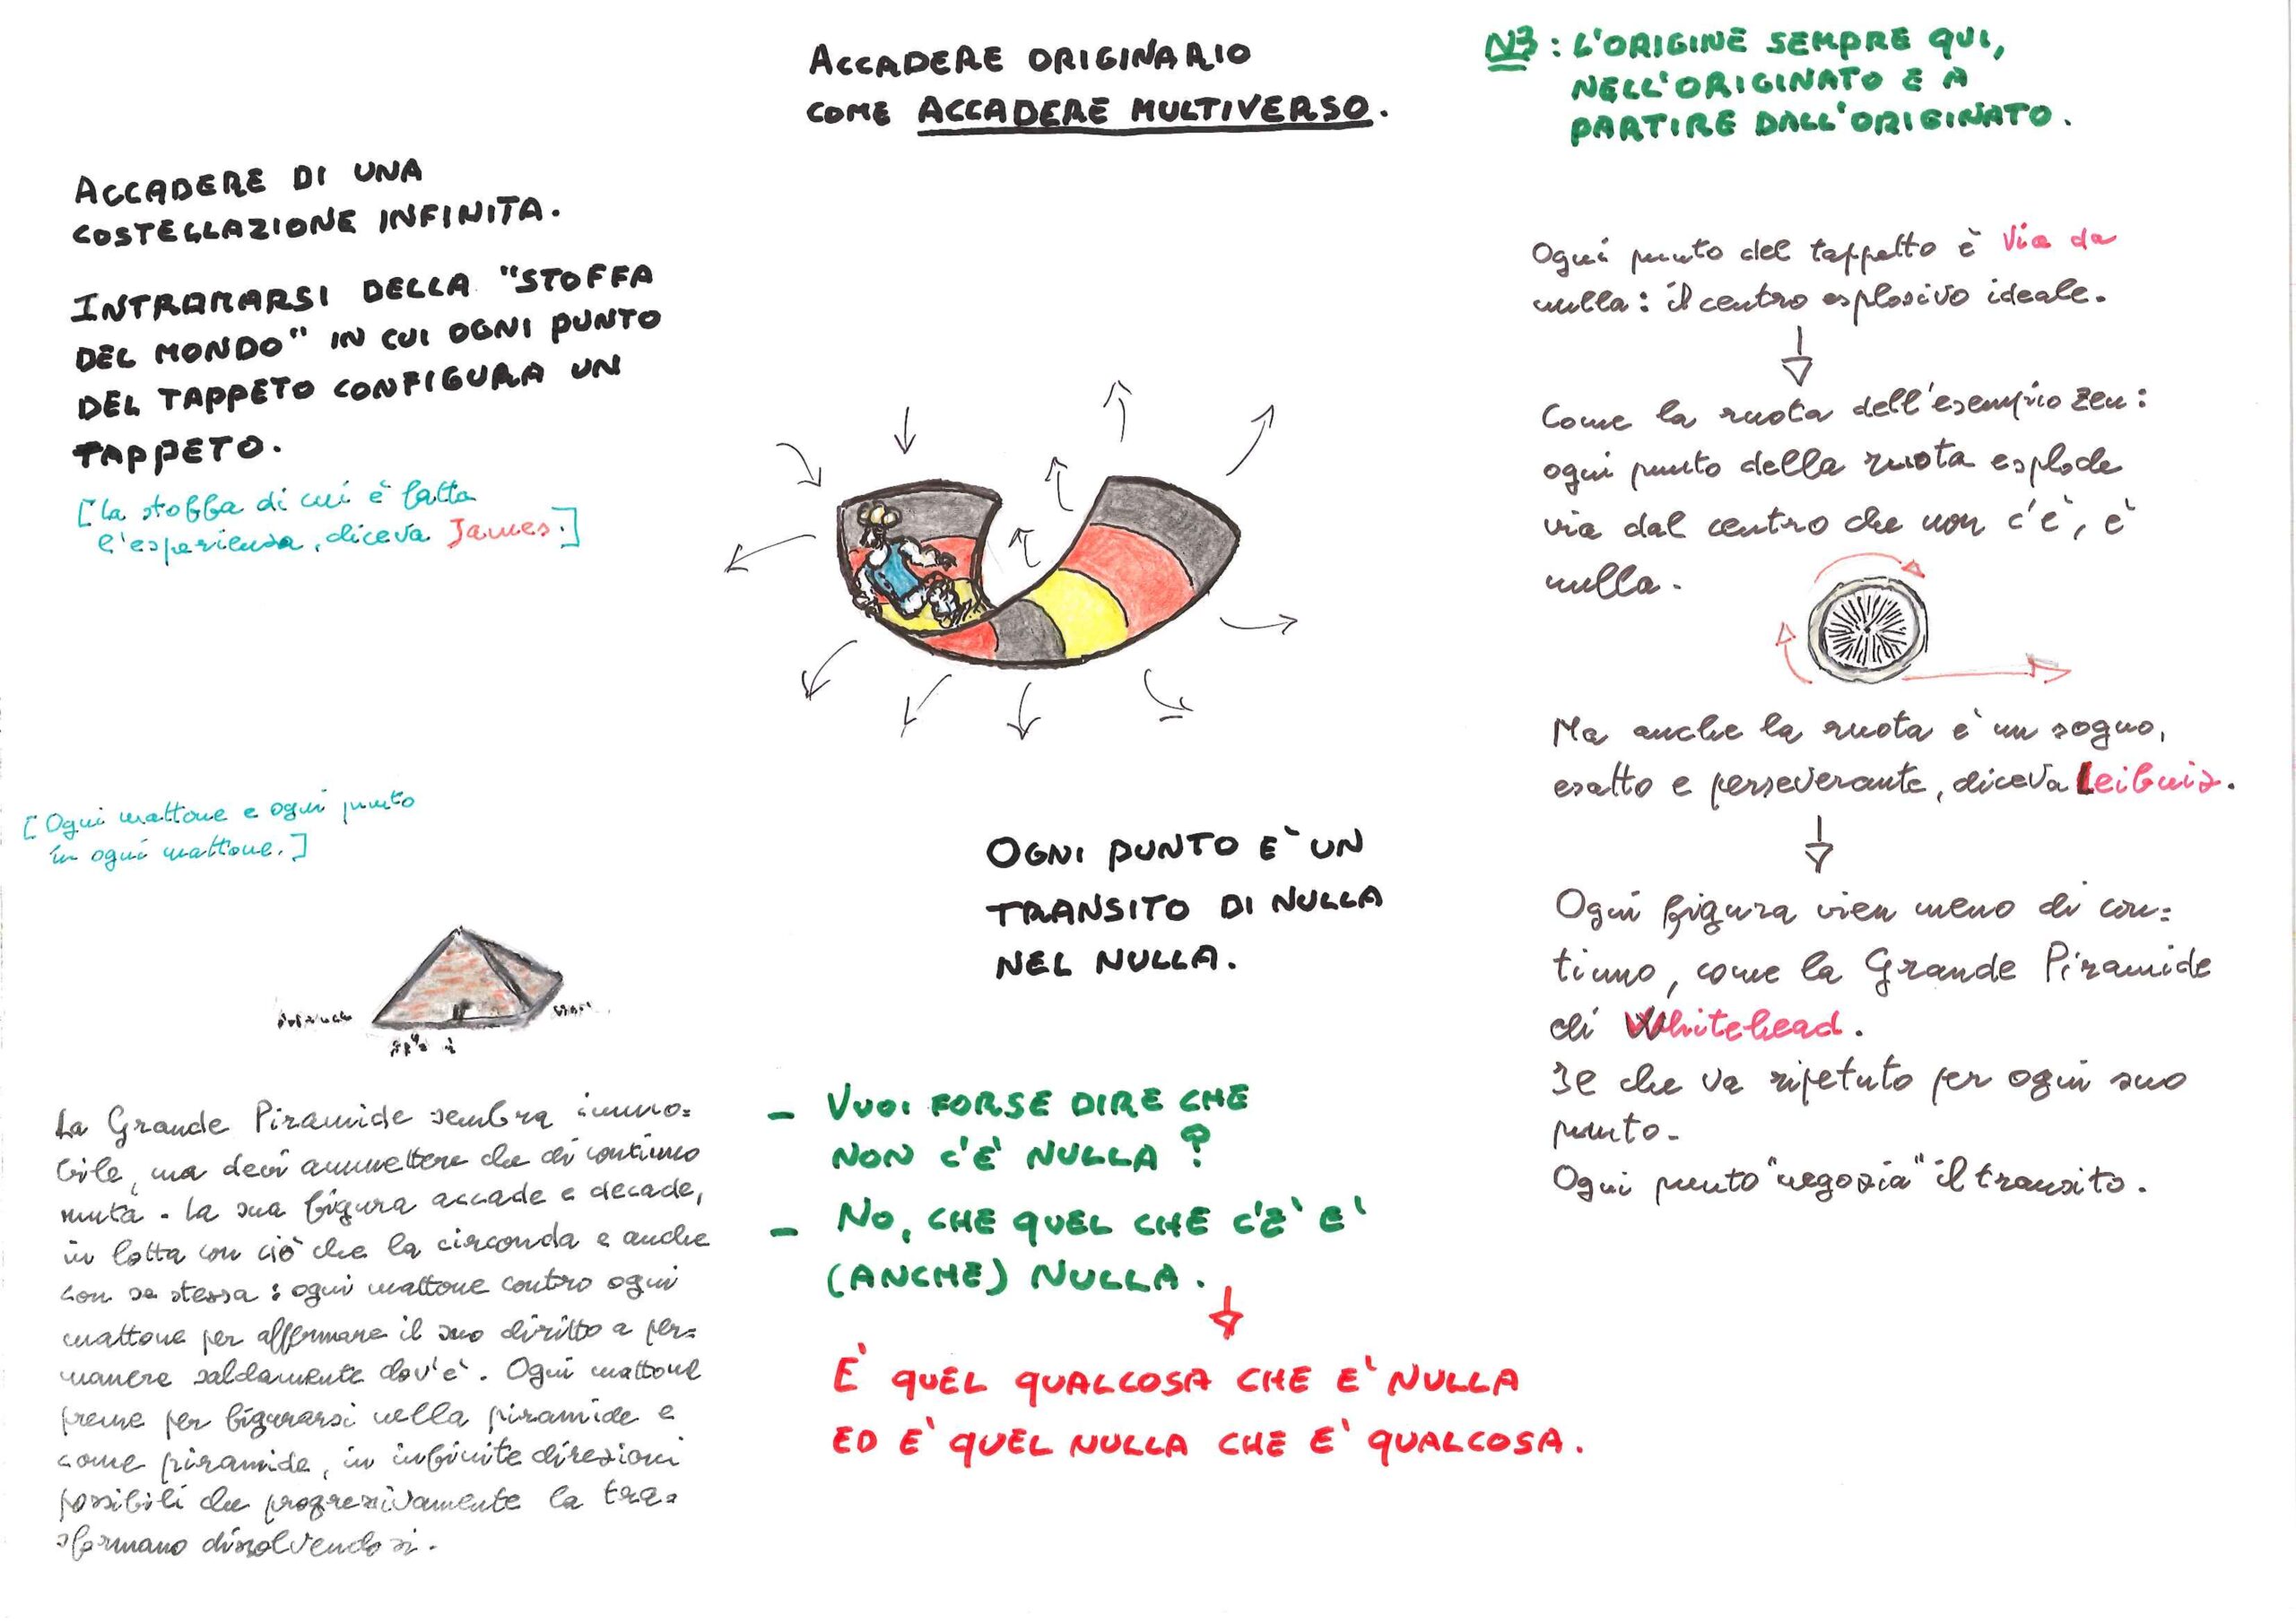 ACCADERE ORIGINARIO
COME ACCADERE MULTIVERSO.
N3: L'ORIGINE SEMPRE QUI,
NELL'ORIGINATO E A
PARTIRE DALL'ORIGINATO.
ACCADERE DI UNA
COSTELLAZIONE INFINITA.
INTRAMARSI DELLA "STOFFA
DEL MONDO" IN CUI OGNI PUNTO
DEL TAPPETO CONFIGURA UN
TAPPETO.
[La stoffa di cui è fatta
l'esperienza, diceva James.]
[Ogni mattone e ogni punto
in ogni mattone.]
La Grande Piramide sembra immo=
bile, ma devi ammettere che di continuo
muta. La sua figura accade e decade,
in lotta con ciò che la circonda e anche
con se stessa: ogni mattone contro ogni
mattone per affermare il suo diritto a per=
manere saldamente dov'è. Ogni mattone
preme per figurarsi nella piramide e
come piramide, in infinite direzioni
possibili che progressivamente la tra=
sformano dissolvendosi.
OGNI PUNTO E' UN
TRANSITO DI NULLA
NEL NULLA.
- VUOI FORSE DIRE CHE
NON C'E' NULLA?
- NO, CHE QUEL CHE C'E' E'
(ANCHE) NULLA.
E' QUEL QUALCOSA CHE E' NULLA
ED E' QUEL NULLA CHE E' QUALCOSA.
Ogni punto del tappetto è via da
nulla: il centro esplosivo ideale.
Come la ruota dell'esempio zen:
ogni punto della ruota esplode
via dal centro che non c'è, è
nulla.
Ma anche la ruota è un sogno,
esatto e perseverante, diceva Leibniz.
Ogni figura vien meno di con=
tinuo, come la Grande Piramide
di Whitehead.
Il che va ripetuto per ogni suo
punto.
Ogni punto "negozia" il transito.